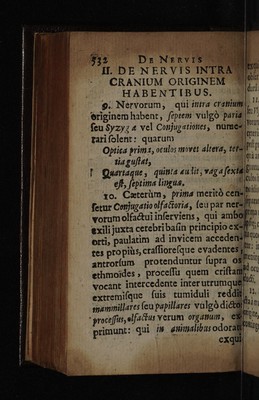 532 DE NERVIS
II. DE NERVIS INTRA
CRANIUM ORIGINEM
HABENTIBUS.
9. Nervorum, qui intra cranium
originem habent, septem vulgò paria
seu Syzygæ vel Conjugationes, nume-
rari solent: quarum
Optica prima, oculos movet altera, ter-
tia gustat,
Quartaque, quinta audit, vaga sexta
est, septima linguæ.
10. Cæterùm, prima meritò cen-
setur Conjugatio olfactoria, seu par ner-
vorum olfactui inserviens, qui ambo
exili juxta cerebri basin principio ex-
orti, paulatim ad invicem acceden-
tes propiùs, crassioresque evadentes,
antrorsum protenduntur supra os
ethmoides, processu quem cristam
vocant intercedente inter utrumque
extremisque suis tumiduli reddit
mammillares seu papillares vulgò dictos
processus, olfactus verum organum, ex
primunt: qui in animalibus odorati
exqui